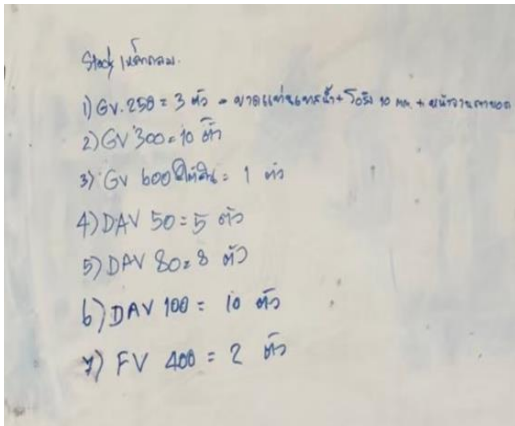 Stock เหล็กกลม.
1) GV. 250 = 3 ตัว - ขาดแท่น + โอริง 10 mm. +
2) GV 300 = 10 ตัว
3) GV 600 = 1 ตัว
4) DAV 50 = 5 ตัว
5) DAV 80 = 8 ตัว
6) DAV 100 = 10 ตัว
7) FV 400 = 2 ตัว